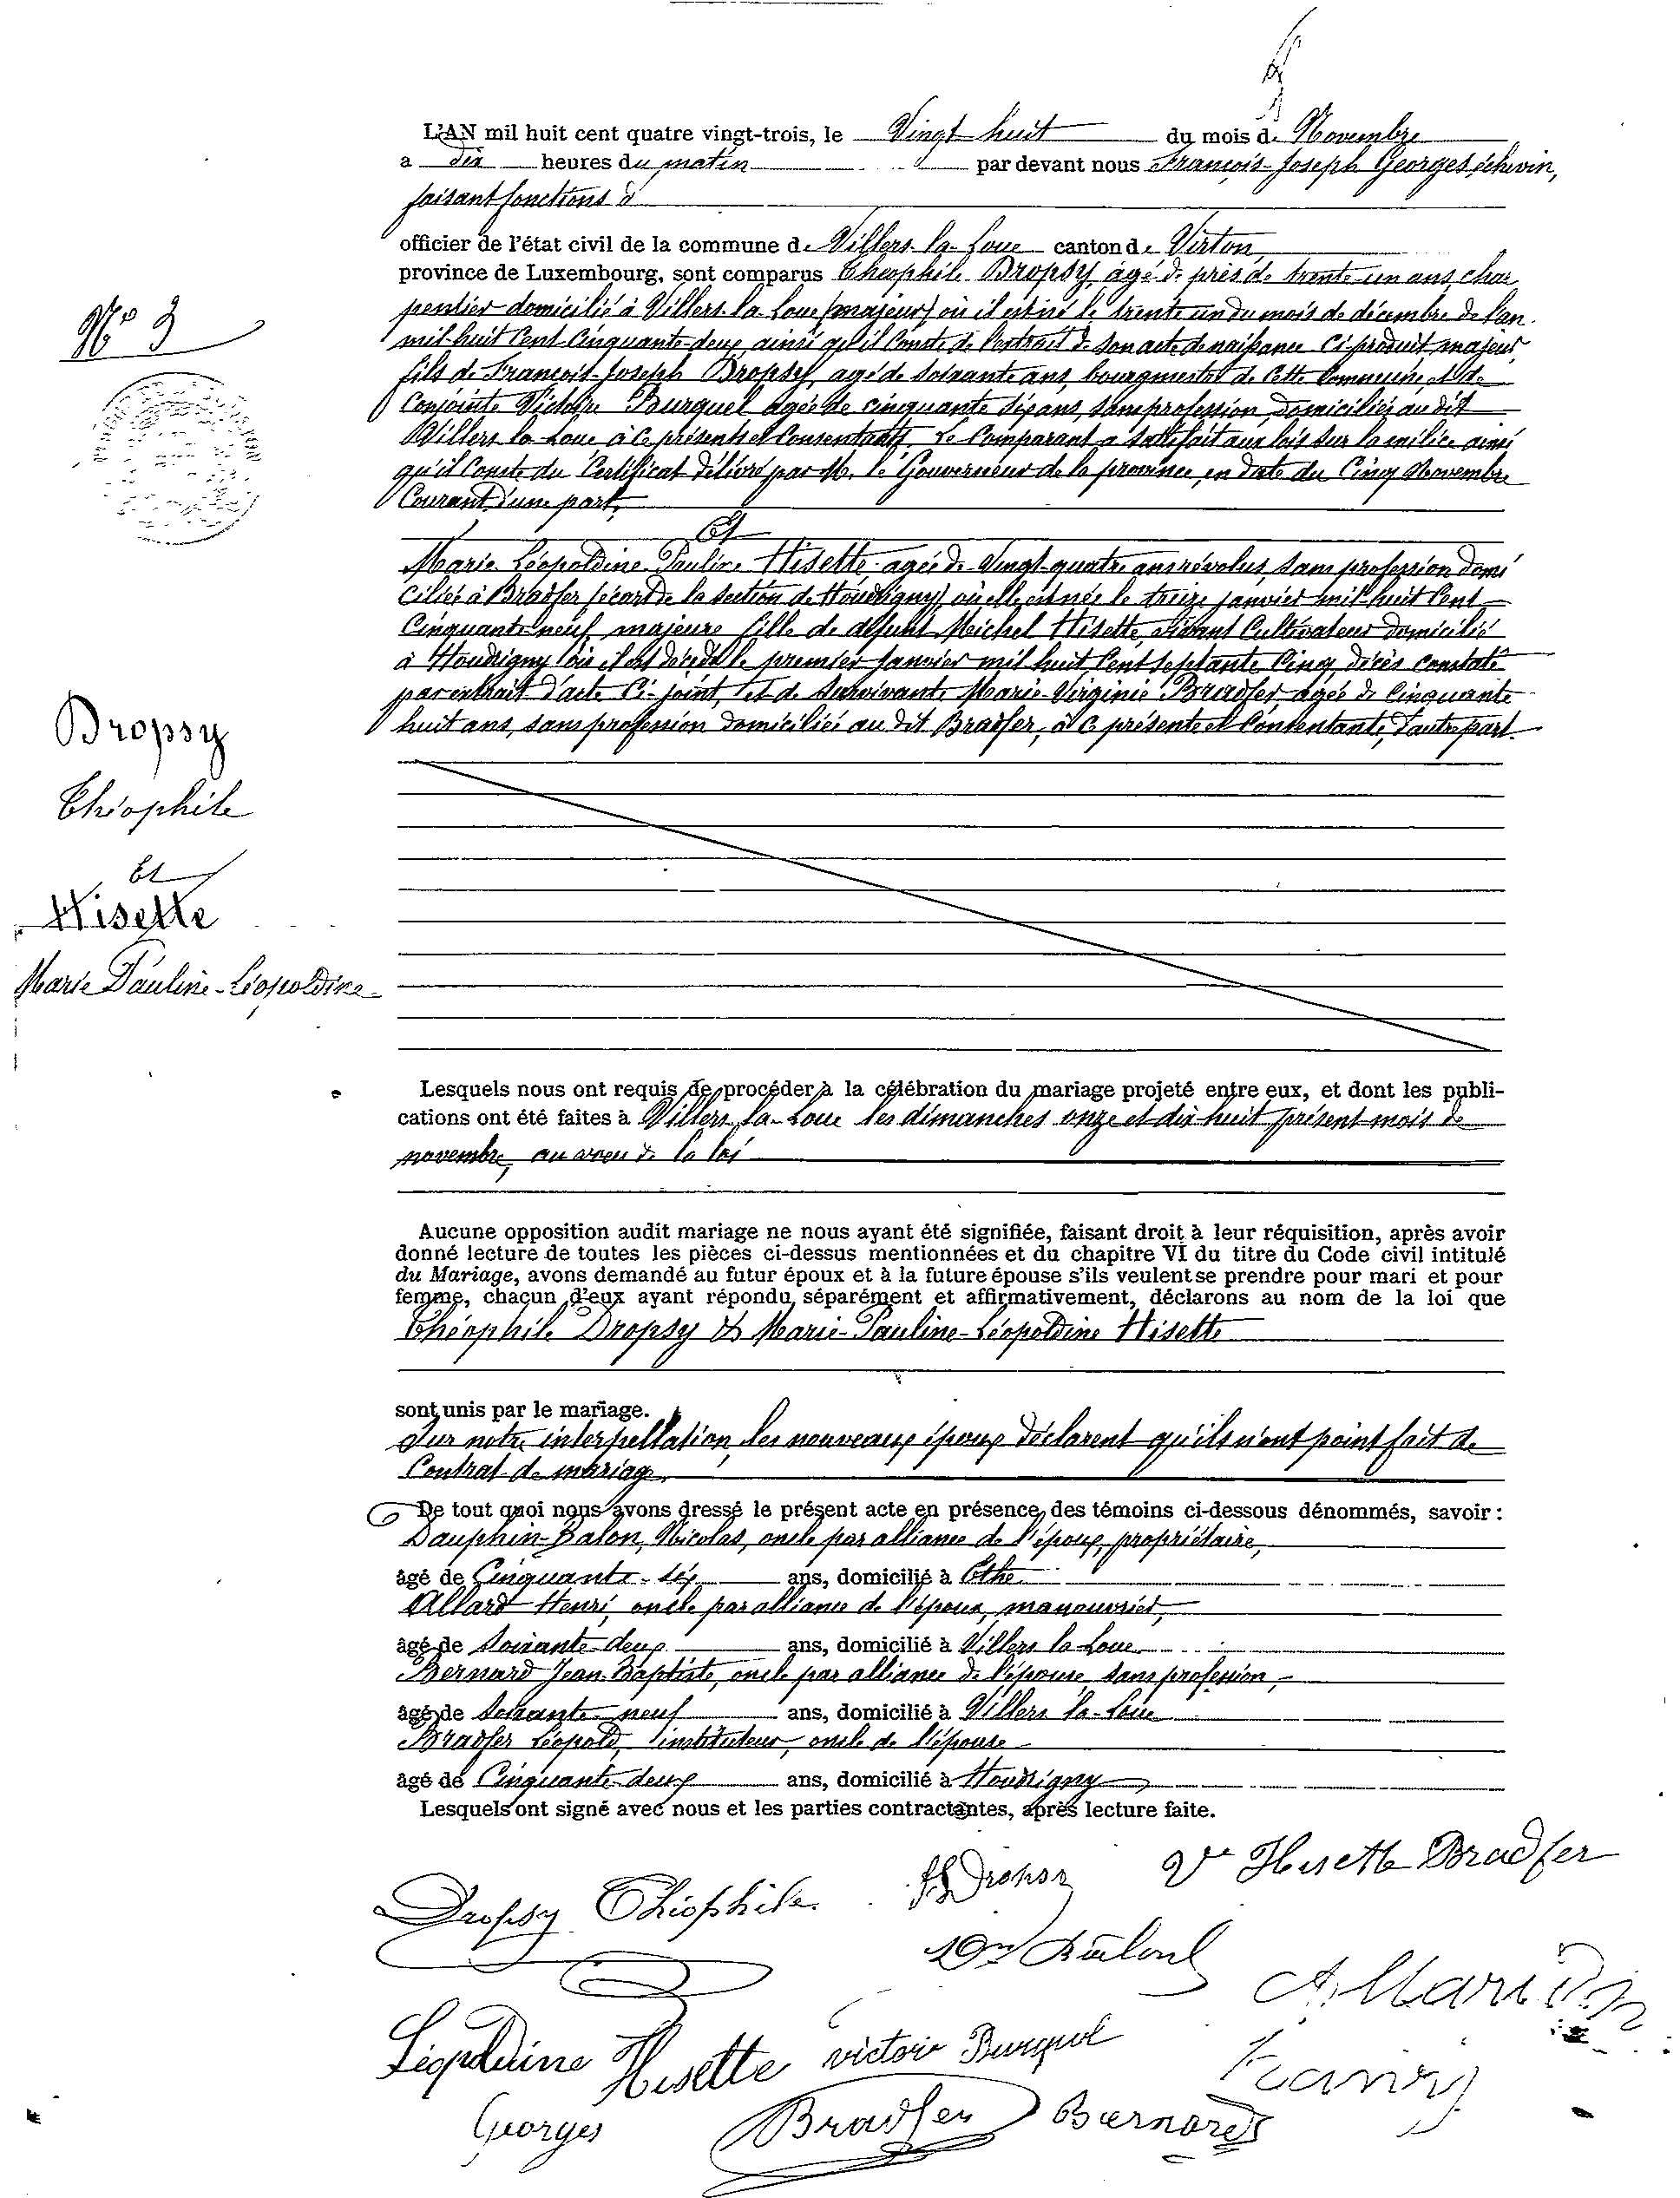 L'AN mil huit cent quatre vingt-trois, le Vingt huit du mois de Novembre
a dix heures du matin par devant nous François-Joseph Georges, échevin,
faisant fonctions d'
officier de l'état civil de la commune de Villers-la-Loue canton de Virton
province de Luxembourg, sont comparus Théophile Dropsy, âgé de près de trente-un ans, char
pentier domicilié à Villers-la-Loue (majeur) où il est né le trente un du mois de décembre de l'an
mil huit Cent Cinquante-deux, ainsi qu'il Conste de l'extrait de son acte de naissance Ci-produit, majeur,
fils de François-Joseph Dropsy, âgé de soixante ans, bourgmestre de Cette Commune et de
Conjointe Victoire Burquel âgée de cinquante six ans, sans profession, domiciliés au dit
Villers-la-Loue à ce présents et Consentants. Le Comparant a satisfait aux lois sur la milice ainsi
qu'il Conste du Certificat délivré par M. le Gouverneur de la province, en date du Cinq Novembre
Courant, d'une part,
Et
Marie-Léopoldine-Pauline Hisette âgée de Vingt-quatre ans révolus, sans profession domi
ciliée à Bradfer (écart de la section de Houdrigny) où elle est née le treize janvier mil-huit Cent
Cinquante-neuf, majeure fille de défunt Michel Hisette, vivant Cultivateur domicilié
à Houdrigny où il est décédé le premier Janvier mil huit Cent septante Cinq, décès constaté
par extrait d'acte Ci-joint, et de survivante Marie-Virginie Bradfer, âgée de Cinquante
huit ans, sans profession domiciliée au dit Bradfer, à ce présente et Consentante, d'autre part.
N° 3
Dropsy
Théophile
Et
Hisette
Marie Pauline-Léopoldine
Lesquels nous ont requis de procéder à la célébration du mariage projeté entre eux, et dont les publi-
cations ont été faites à Villers-la-Loue les dimanches onze et dix-huit présent mois de
novembre, au voeu de la loi
Aucune opposition audit mariage ne nous ayant été signifiée, faisant droit à leur réquisition, après avoir
donné lecture de toutes les pièces ci-dessus mentionnées et du chapitre VI du titre du Code civil intitulé
du Mariage, avons demandé au futur époux et à la future épouse s'ils veulent se prendre pour mari et pour
femme, chacun d'eux ayant répondu séparément et affirmativement, déclarons au nom de la loi que
Théophile Dropsy & Marie-Pauline-Léopoldine Hisette
sont unis par le mariage.
Sur notre interpellation, les nouveaux époux déclarent qu'ils n'ont point fait de
Contrat de mariage.
De tout quoi nous avons dressé le présent acte en présence des témoins ci-dessous dénommés, savoir :
Dauphin-Balon, Nicolas, oncle par alliance de l'époux, propriétaire,
âgé de Cinquante-six ans, domicilié à Ethe
Allard Henri, oncle par alliance de l'époux, manouvrier,
âgé de Soixante-deux ans, domicilié à Villers-la-Loue
Bernard Jean-Baptiste, oncle par alliance de l'épouse, sans profession,
âgé de Soixante-neuf ans, domicilié à Villers-la-Loue
Bradfer Léopold, instituteur, oncle de l'épouse
âgé de Cinquante-deux ans, domicilié à Houdrigny
Lesquels ont signé avec nous et les parties contractantes, après lecture faite.
Dropsy Théophile
Dropsy
Ve Hisette Bradfer
Léopoldine Hisette
victoire Burquel
Georges
Bradfer
Bernard